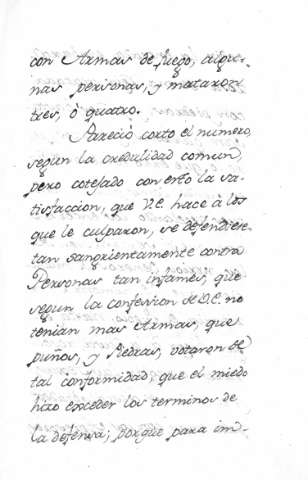 con Armas de fuego, algu-
nas personas, y mataron
tres, ò quatro.
Pareciò corto el numero,
segun la credulidad comun,
pero cotejado con esto la sa-
tisfaccion, que V.E. hace à los
que le culparon, se defendiese
tan sangrientamente contra
Personas tan infames, que
segun la confession de V.E. no
tenian mas Armas, que
puños, y Piedras, votaron de
tal conformidad, que el miedo
hizo exceder los terminos de
la defensa; porque para im-